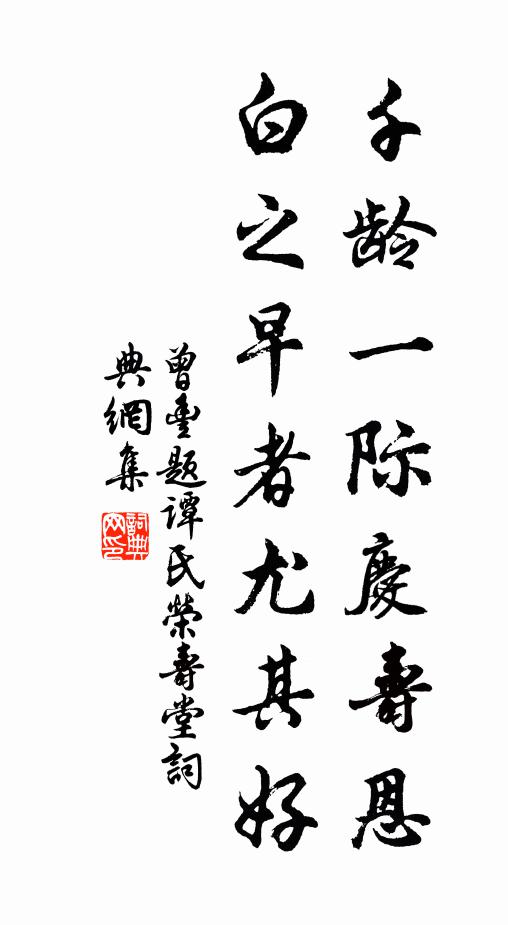 千龄一际慶壽恩
白之早者尤其好
曾豊题譚氏榮壽堂詞
典網集
詞典
网印